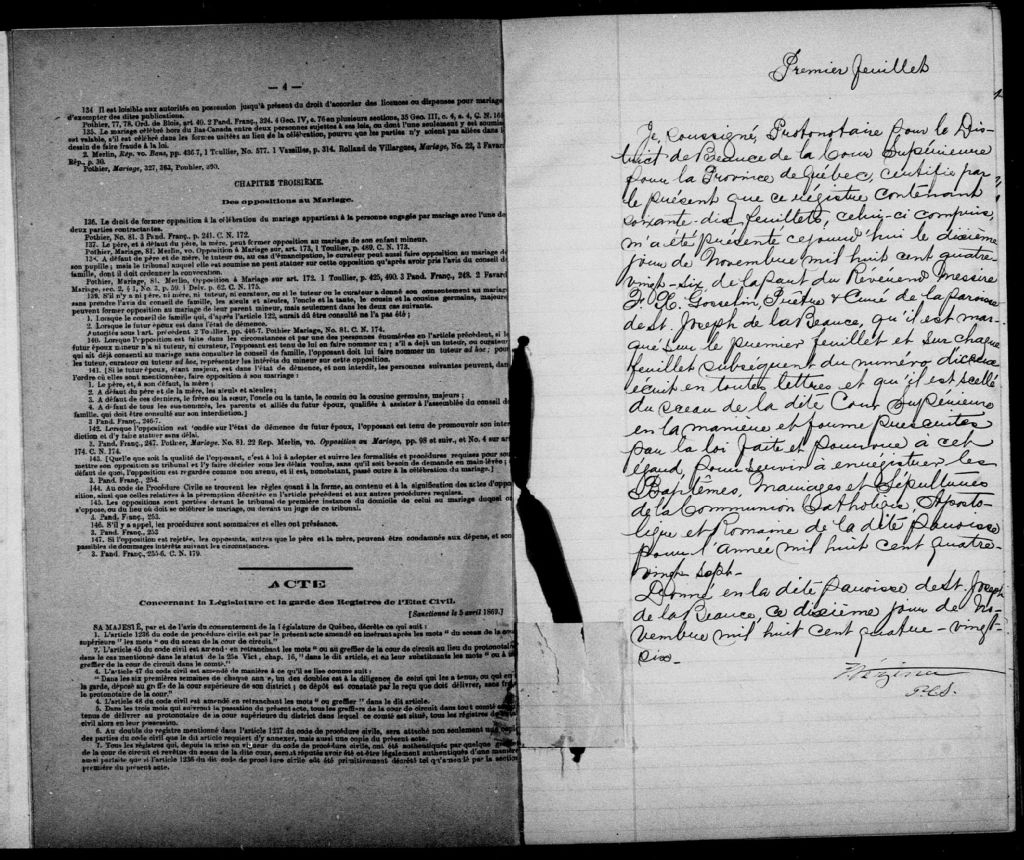 — 4 —
134 Il est loisible aux autorités en possession jusqu'à présent du droit d'accorder des licences ou dispenses pour mariage
d'exempter des dites publications.
Pothier, 77, 78. Ord. de Blois, art 40. 2 Pand. Franç., 324. 4 Geo. IV, c. 76 en plusieurs sections, 35 Geo. III, c. 4, s. 4, C. N. 16
135. Le mariage célébré hors du Bas-Canada entre deux personnes sujettes à ses lois, ou dont l'une seulement y est soumise
est valable, s'il est célébré dans les formes usitées au lieu de la célébration, pourvu que les parties n'y soient pas allées dans l
dessin de faire fraude à la loi.
2. Merlin, Rép. vo. Bans, pp. 436-7, 1 Toullier, No. 577. 1 Vazilles, p. 314. Rolland de Villargues, Mariage, No. 22, 3 Favar
Rép., p. 30.
Pothier, Mariage, 327, 363, Pouhier,
CHAPITRE TROISIÈME.
Des oppositions au Mariage.
136. Le droit de former opposition à la célébration du mariage appartient à la personne engagée par mariage avec l'une de
deux parties contractantes.
Pothier, No. 81. 3 Pand. Franç., p. 241. C. N. 172.
137. Le père, et à défaut du père, la mère, peut former opposition au mariage de son enfant mineur.
Pothier, Mariage, 81. Merlin, vo. Opposition à Mariage sur. art. 173, 1 Toullier, p. 489. C. N. 173.
138. A défaut de père et de mère, le tuteur ou, au cas d'émancipation, le curateur peut aussi faire opposition au mariage de
son pupille; mais le tribunal auquel elle est soumise ne peut statuer sur cette opposition qu'après avoir pris l'avis du conseil de
famille, dont il doit ordonner la convocation.
Pothier, Mariage, 81. Merlin, Opposition à Mariage sur art. 172. 1 Toullier, p. 425, 490. 3 Pand. Franç., 248. 2 Favard
Mariage, sec. 2, § 1, No. 3, p. 59. 1 Delv. p. 62. C. N. 175.
139. S'il n'y a ni père, ni mère, ni tuteur, ni curateur, ou si le tuteur ou le curateur a donné son consentement au mariage
sans prendre l'avis du conseil de famille, les aïeuls et aïeules, l'oncle et la tante, le cousin et la cousine germains, majeurs
peuvent former opposition au mariage de leur parent mineur, mais seulement dans les deux cas suivants.
1. Lorsque le conseil de famille qui, d'après l'article 122, aurait dû être consulté ne l'a pas été;
2. Lorsque le futur époux est dans l'état de démence.
Autorités sous l'art. précédent. 2 Toullier, pp. 490-7. Pothier Mariage, No. 81. C. N. 174.
140. Lorsque l'opposition est faite dans les circonstances et par une des personnes énumérées en l'article précédent, si le
futur époux mineur n'a ni tuteur, ni curateur, l'opposant est tenu de lui en faire nommer un; s'il a déjà un tuteur, ou curateur
qui ait déjà consenti au mariage sans consulter le conseil de famille, l'opposant doit lui faire nommer un tuteur ad hoc; pour
les tuteur, curateur ou tuteur ad hoc, représenter les intérêts du mineur sur cette opposition.
141. [Si le futur époux, étant majeur, est dans l'état de démence, et non interdit, les personnes suivantes peuvent, dan
l'ordre où elles sont mentionnées, faire opposition à son mariage:
1. Le père, et, à son défaut, la mère;
2. A défaut du père et de la mère, les aïeuls et aïeules;
3. A défaut de ces derniers, le frère ou la sœur, l'oncle ou la tante, le cousin ou la cousine germains, majeurs;
4. A défaut de tous les sus-nommés, les parents et alliés du futur époux, qualifiés à assister à l'assemblée du conseil de
famille, qui doit être consulté sur son interdiction.]
3 Pand. Franç., 246-7.
142. Lorsque l'opposition est fondée sur l'état de démence du futur époux, l'opposant est tenu de promouvoir son inter
diction et d'y faire statuer sans délai.
3. Pand. Franç., 247. Pothier, Mariage. No. 81. 22 Rep. Merlin, vo. Opposition au Mariage, pp 98 et suiv., et No. 4 sur art
174. C. N. 174.
143. [Quelle que soit la qualité de l'opposant, c'est à lui à adopter et suivre les formalités et procédures requises pour sou
mettre son opposition au tribunal et l'y faire décider sous les délais voulus, sans qu'il soit besoin de demande en main-levée;
défaut de quoi, l'opposition est regardée comme non avenu, et il est, nonobstant, passé outre à la célébration du mariage.]
3. Pand. Franç., 254.
144. Au code de Procédure Civile se trouvent les règles quant à la forme, au contenu et à la signification des actes d'oppo
sition, ainsi que celles relatives à la péremption décrétée en l'article précédent et aux autres procédures requises.
145. Les oppositions sont portées devant le tribunal de première instance du domicile de celui au mariage duquel on
s'oppose, ou du lieu où doit se célébrer le mariage, ou devant un juge de ce tribunal.
3. Pand. Franç., 253.
146. S'il y a appel, les procédures sont sommaires et elles ont préséance.
3. Pand. Franç., 253
147. Si l'opposition est rejetée, les opposants, autres que le père et la mère, peuvent être condamnés aux dépens, et son
passibles de dommages intérêts suivant les circonstances.
3. Pand. Franç., 255-6. C. N. 179.
ACTE
Concernant la Législature et la garde des Registres de l'Etat Civil.
[Sanctionné le 5 avril 1867.]
SA MAJESTÉ, par et de l'avis du consentement de la législature de Québec, décrète ce qui suit:
1. L'article 1236 du code de procédure civile est par le présent acte amendé en insérant après les mots "du sceau de la cour
supérieure" les mots "ou du sceau de la cour de circuit."
2. L'article 45 du code civil est amendé en retranchant les mots "ou au greffier de la cour de circuit au lieu du protonotaire
dans le cas mentionné dans le statut de la 25e Vict, chap. 16," dans le dit article, et en leur substituants les mots "ou à
greffier de la cour de circuit dans le comté."
4. L'article 47 du code civil est amendé de manière à ce qu'il se lise comme suit:
"Dans les six premières semaines de chaque année, un des doubles est à la diligence de celui qui les a tenus, ou qui en
la garde, déposé au greffe de la cour supérieure de son district; ce dépôt est constaté par le reçu que doit délivrer, sans frais
le protonotaire de la cour."
4. L'article 48 du code civil est amendé en retranchant les mots "ou greffier" dans le dit article.
5. Dans les trois mois qui suivront la passation du présent acte, tous les greffiers de la cour de circuit dans tout comté
tenus de délivrer au protonotaire de la cour supérieure du district dans lequel ce comté est situé, tous les régistres de
civil alors en leur possession.
6. Au double du registre mentionné dans l'article 1237 du code de procédure civile, sera attaché non seulement une copie
des parties du code civil que le dit article requiert d'y annexer, mais aussi une copie du présent acte.
7. Tous les régistres qui, depuis la mise en vigueur du code de procédure civile, ont été authentiqués par quelque greffier
de la cour de circuit et revêtus du sceau de la dite cour, seront réputés avoir été et être légalement authentiqués d'une manière
aussi parfaite que si l'article 1236 du dit code de procédure civile eût été primitivement décrété tel qu'amendé par la section
première du présent acte.
Premier feuillet
Je, soussigné, Protonotaire pour le Dis-
trict de Beauce de la Cour Supérieure
pour la Province de Québec, certifie par
le présent que ce régistre contenant
soixante-dix feuillets, celui-ci compris,
m'a été présenté cejourd'hui le dixième
jour de Novembre mil huit cent quatre-
vingt-six, de la part du Révérend Messire
F. X. Gosselin, Prêtre & Curé de la paroisse
de St. Joseph de la Beauce, qu'il est mar-
qué sur le premier feuillet et sur chaque
feuillet subséquent du numéro d'icelui
écrit en toutes lettres et qu'il est scellé
du sceau de la dite Cour Supérieure
en la manière et forme prescrites
par la loi faite et pourvue à cet
égard, pour servir à enrégistrer les
Baptêmes, Mariages et Sépultures
de la Communion Catholique, Aposto-
lique et Romaine de la dite paroisse
pour l'année mil huit cent quatre-
vingt-sept.
Donné en la dite paroisse de St. Joseph
de la Beauce, ce dixième jour de No-
vembre mil huit cent quatre-vingt-
six.
Vézina
P.C.S.